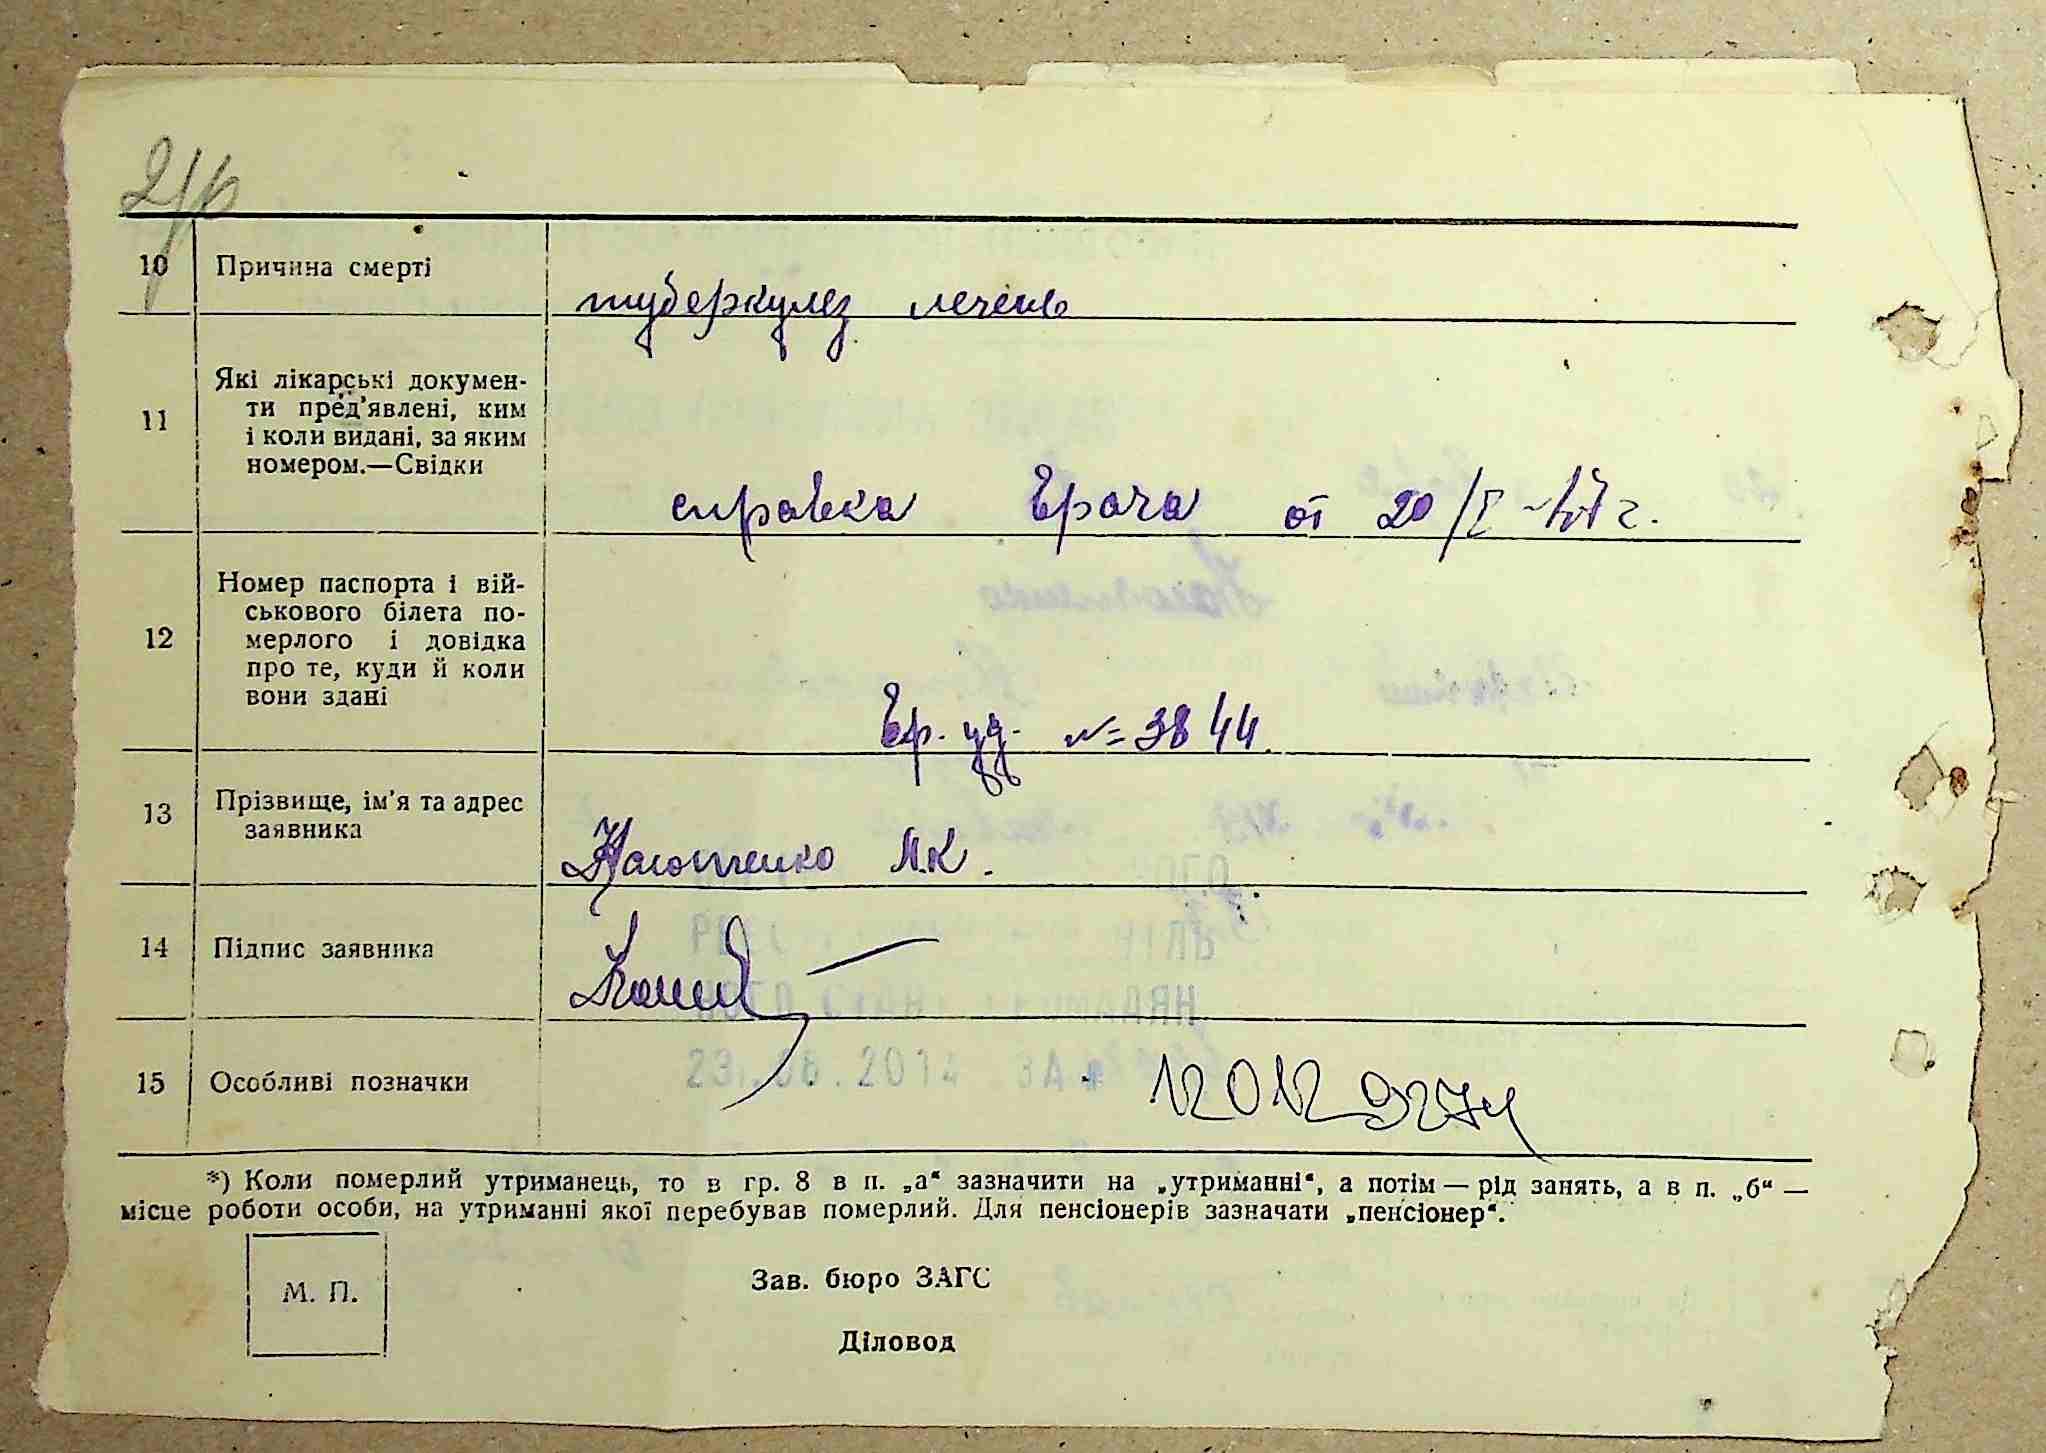 10 Причина смерті
туберкулез печень
11 Які лікарські докумен-
ти пред'явлені, ким
і коли видані, за яким
номером.—Свідки
справка врача от 20/I г.
12 Номер паспорта і вій-
ськового білета по-
мерлого і довідка
про те, куди й коли
вони здані
Вр. уд. №=3844.
13 Прізвище, ім'я та адрес
заявника
М.К.
14 Підпис заявника
15 Особливі позначки
*) Коли померлий утриманець, то в гр. 8 в п. „а“ зазначити на „утриманні“, а потім — рід занять, а в п. „б“ —
місце роботи особи, на утриманні якої перебував померлий. Для пенсіонерів зазначати „пенсіонер“.
М. П.
Зав. бюро ЗАГС
Діловод